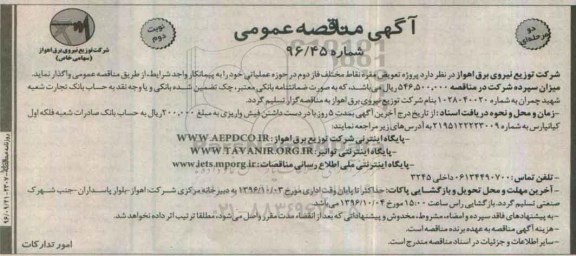 آگهی مناقصه عمومی
شماره ۹۶/۴۵
نوبت دوم
دو مرحله‌ای
شرکت توزیع نیروی برق اهواز
(سهامی خاص)
شرکت توزیع نیروی برق اهواز در نظر دارد پروژه تعویض مقره نقاط مختلف فاز دوم در حوزه عملیاتی خود را به پیمانکار واجد شرایط، از طریق مناقصه عمومی واگذار نماید.
میزان سپرده شرکت در مناقصه ۵۴۶,۵۰۰,۰۰۰ ریال می‌باشد، که به صورت ضمانتنامه بانکی معتبر، چک تضمین شده بانکی و یا وجه نقد به حساب بانک تجارت شعبه
شهید چمران به شماره ۱۰۲۸۰۴۰۰۲۰ بنام شرکت توزیع نیروی برق اهواز به مناقصه گزار تسلیم گردد.
-زمان و محل و نحوه دریافت اسناد: از تاریخ درج آخرین آگهی بمدت ۵ روز با در دست داشتن فیش واریزی به مبلغ ۲۰۰,۰۰۰ ریال به حساب بانک صادرات شعبه فلکه اول
کیانپارس به شماره ۲۱۹۵۱۲۲۲۲۳۰۰۹ به آدرس‌های زیر مراجعه نمایند:
-پایگاه اینترنتی شرکت توزیع برق اهواز: WWW.AEPDCO.IR
-پایگاه اینترنتی توانیر: WWW.TAVANIR.ORG.IR
-پایگاه اینترنتی ملی اطلاع رسانی مناقصات: www.iets.mporg.ir
- تلفن تماس: ۰۶۱۳۴۴۹۰۷۰۰ داخلی ۳۲۴۵
-آخرین مهلت و محل تحویل و بازگشایی پاکات: حداکثر تا پایان وقت اداری مورخ ۱۳۹۶/۱۰/۰۳ به دبیرخانه مرکزی شرکت اهواز-بلوار پاسداران-جنب شهرک
صنعتی تسلیم گردد. بازگشایی راس ساعت ۱۵:۰۰ مورخ ۱۳۹۶/۱۰/۰۴ می‌باشد.
-به پیشنهادهای فاقد سپرده و امضاء، مشروط، مخدوش و پیشنهاداتی که بعد از انقضاء مدت مقرر واصل می‌شود، مطلقا ترتیب اثر داده نخواهد شد.
-هزینه آگهی مناقصه به عهده برنده مناقصه است.
-سایر اطلاعات و جزئیات در اسناد مناقصه مندرج است.
امور تدارکات